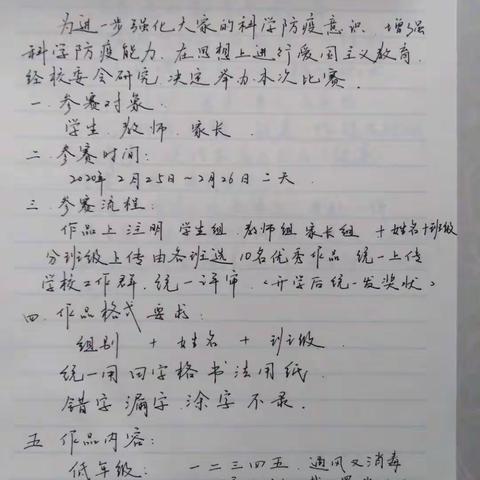 为进一步强化大家的科学防疫意识、增强
科学防疫能力、在思想上进行爱国主义教育、
经校委会研究、决定举办本次比赛.
一、参赛对象:
学生、教师、家长、
二、参赛时间:
2020年2月25日~2月26日 二天.
三、参赛流程:
作品上注明 学生组、教师组、家长组 +姓名+班级
分班级上传由各班选10名优秀作品 统一上传
学校工作群.统一评审.(开学后统一发奖状)
四、作品格式要求:
组别 + 姓名 + 班级
统一用田字格书法用纸.
错字漏字.涂字不录.
五、作品内容:
低年级: 一二三四五, 通风又消毒